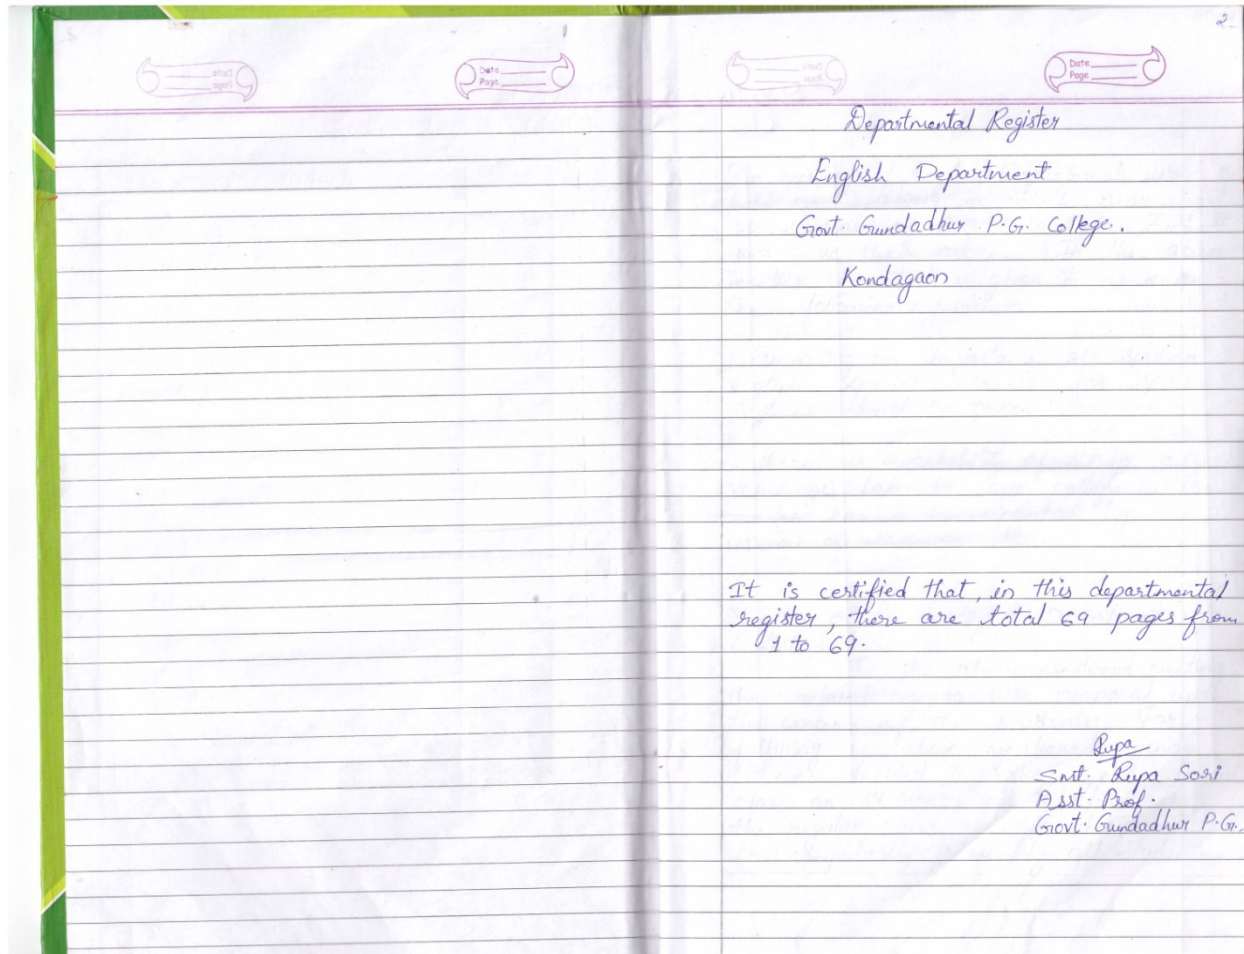 1
Date
Page
2
Date
Page
Departmental Register
English Department
Govt. Gundadhur P.G. College.
Kondagaon
It is certified that, in this departmental
register, there are total 69 pages from
1 to 69.
Rupa
Smt. Rupa Sori
Asst. Prof.
Govt. Gundadhur P.G.